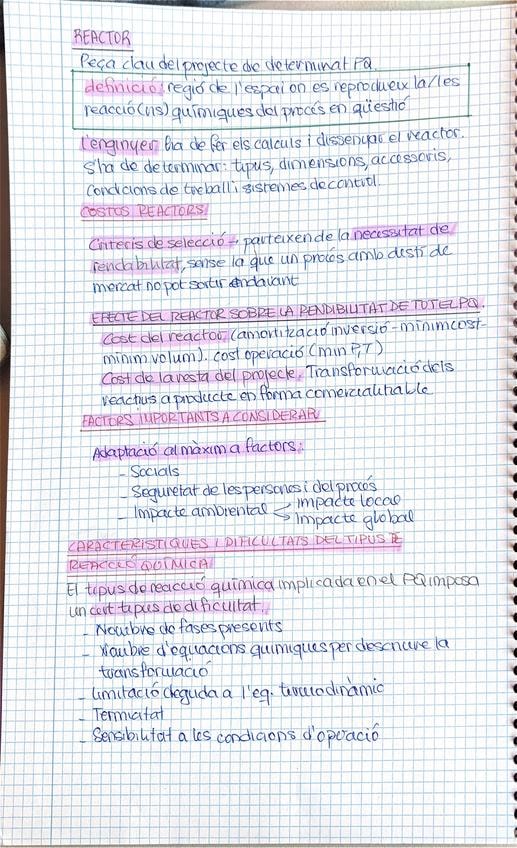 REACTOR
Peça clau del projecte de determinat PQ.
definició: regió de l'espai on es reprodueix la/les
reacció(ns) químiques del procés en qüestió
L'enginyer ha de fer els calculs i dissenyar el reactor.
S'ha de determinar: tipus, dimensions, accessoris,
condicions de treball i sistemes de control.
COSTOS REACTORS
Criteris de selecció → parteixen de la necessitat de
rendabilitat, sense la que un procés amb destí de
mercat no pot sortir endavant
EFECTE DEL REACTOR SOBRE LA RENDIBILITAT DE TOT EL PQ.
Cost del reactor, (amortització inversió - mínim cost-
mínim volum). cost operació (min P,T)
Cost de la resta del projecte. Transformació dels
reactius a producte en forma comercialitzable
FACTORS IMPORTANTS A CONSIDERAR
Adaptació al màxim a factors:
- Socials
- Seguretat de les persones i del procés
- Impacte ambiental < impacte local
impacte global
CARACTERÍSTIQUES I DIFICULTATS DEL TIPUS DE
REACCIÓ QUÍMICA
El tipus de reacció química implicada en el PQ imposa
un cert tipus de dificultat.
- Nombre de fases presents
- Nombre d'equacions químiques per descriure la
transformació
- Limitació deguda a l'eq. termodinàmic
- Termicitat
- Sensibilitat a les condicions d'operació